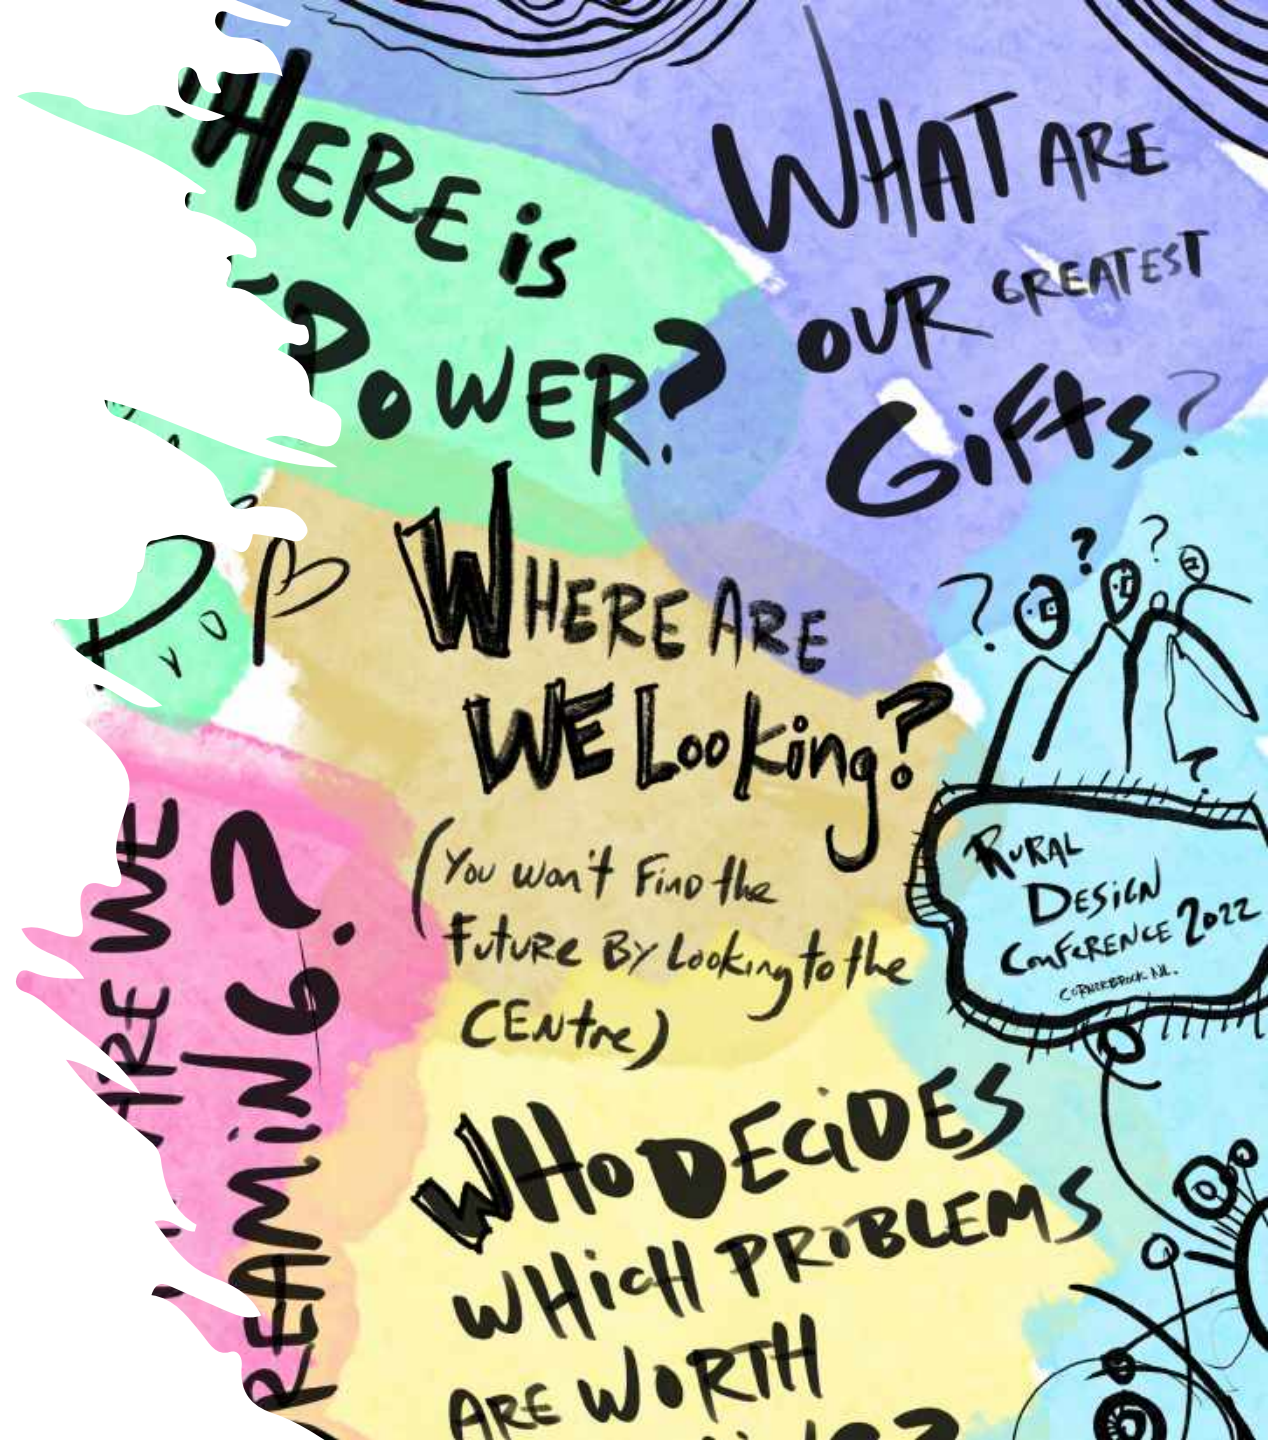 HERE is
POWER?
WHAT ARE
OUR GREATEST
GiFts?
WHERE ARE
WE Looking?
(You won't Find the
Future By Looking to the
CENtre)
RURAL
DESiGN
ConFERENCE 2022
CORNERBROOK.NL.
ARE WE
REAMiNG?
WHO DECiDES
WHicH PROBLEMS
ARE WORTH